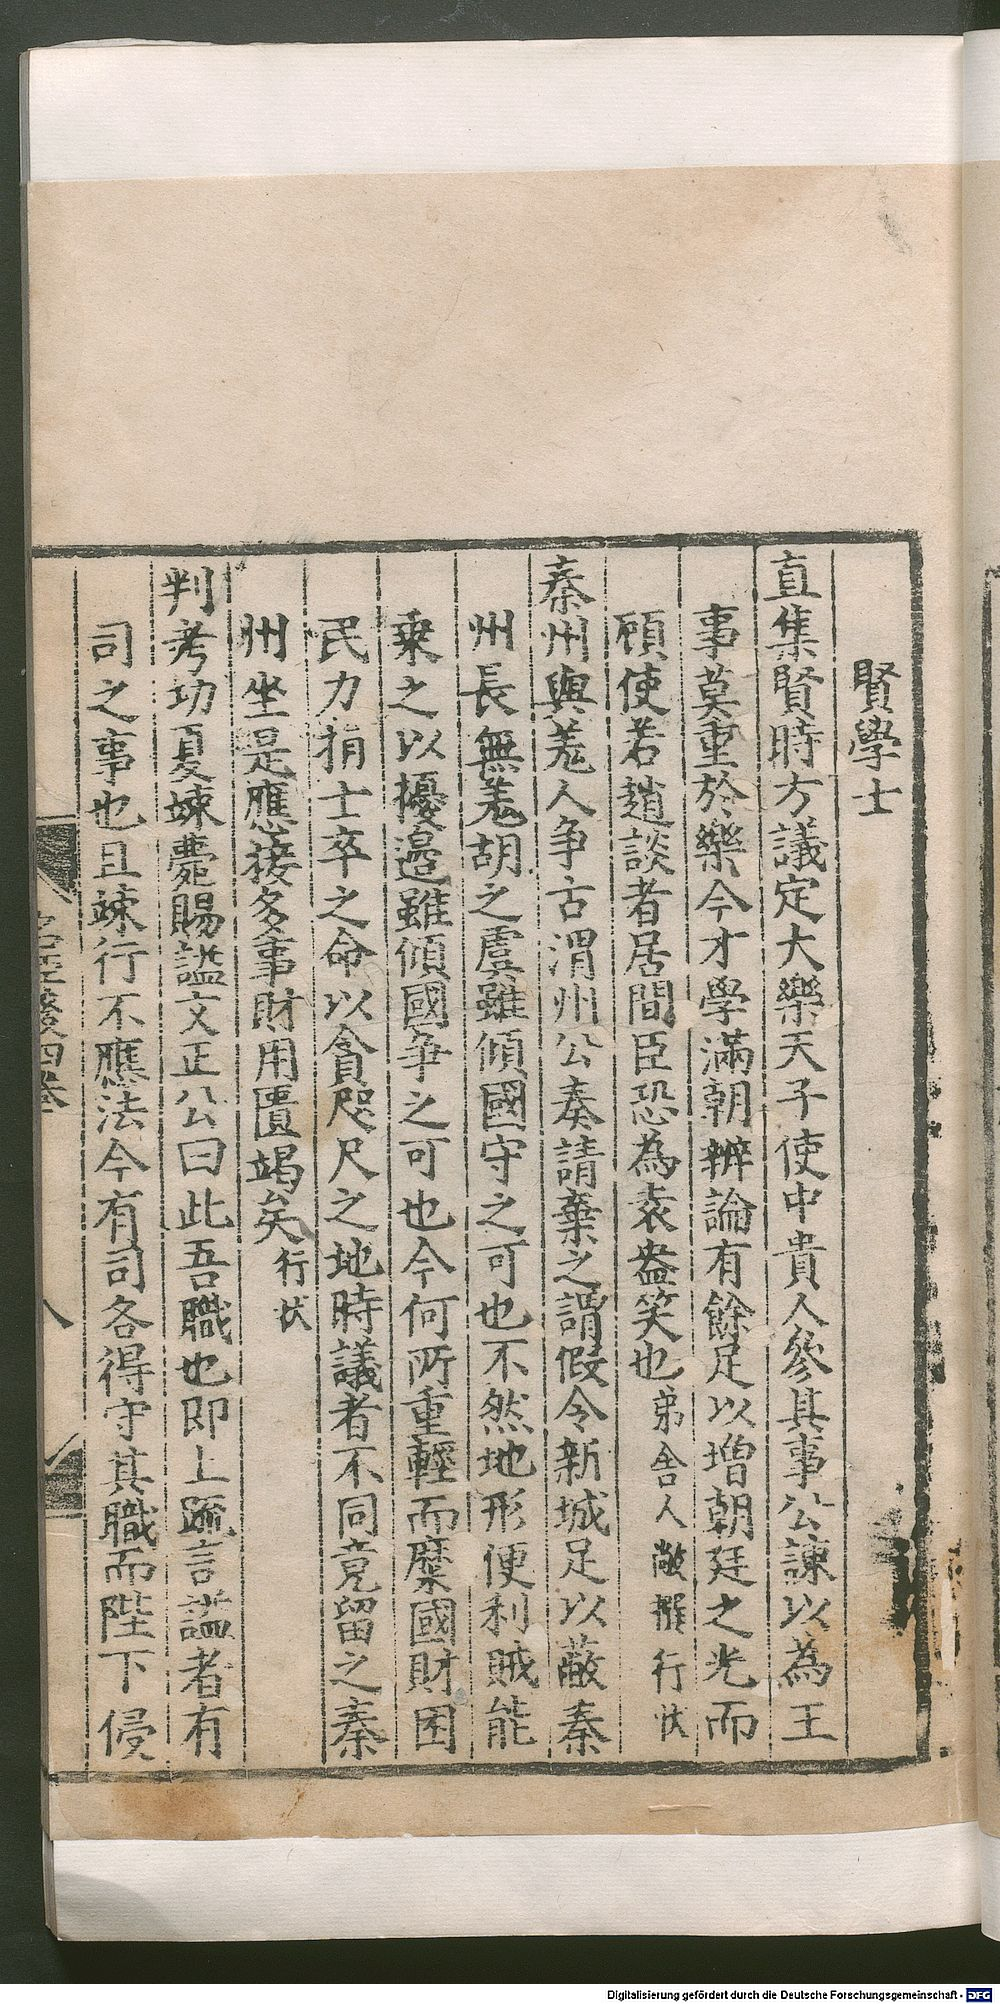 賢學士
直集賢時方議定大樂天子使中貴人參其事公諫以為王
事莫重於樂今才學滿朝辨論有餘足以增朝廷之光而
顧使若趙談者居間臣恐為袁盎笑也弟舍人攽撰行狀
秦州與羌人争古渭州公奏請棄之謂假令新城足以蔽秦
州長無羌胡之虞雖傾國守之可也不然地形便利賊能
乗之以擾邉雖傾國争之可也今何所重輕而糜國財困
民力捐士卒之命以貪咫尺之地時議者不同竟留之秦
州坐是應接多事財用匱竭矣行狀
判考功夏竦薨賜諡文正公曰此吾職也即上疏言諡者有
司之事也且竦行不應法今有司各得守其職而陛下侵
名臣錄四卷
八
Digitalisierung gefördert durch die Deutsche Forschungsgemeinschaft - DFG